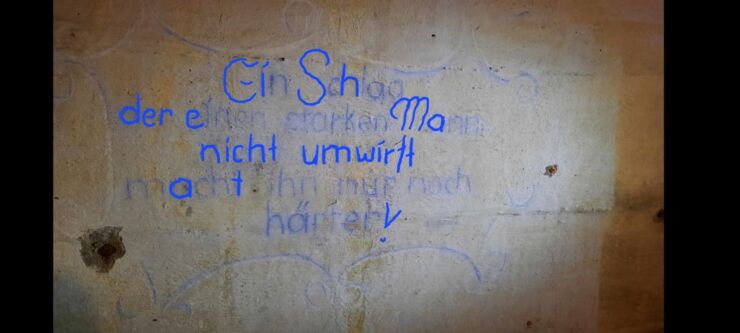 Ein Schlag
der einen starken Mann
nicht umwirft
macht ihn nur noch
härter!